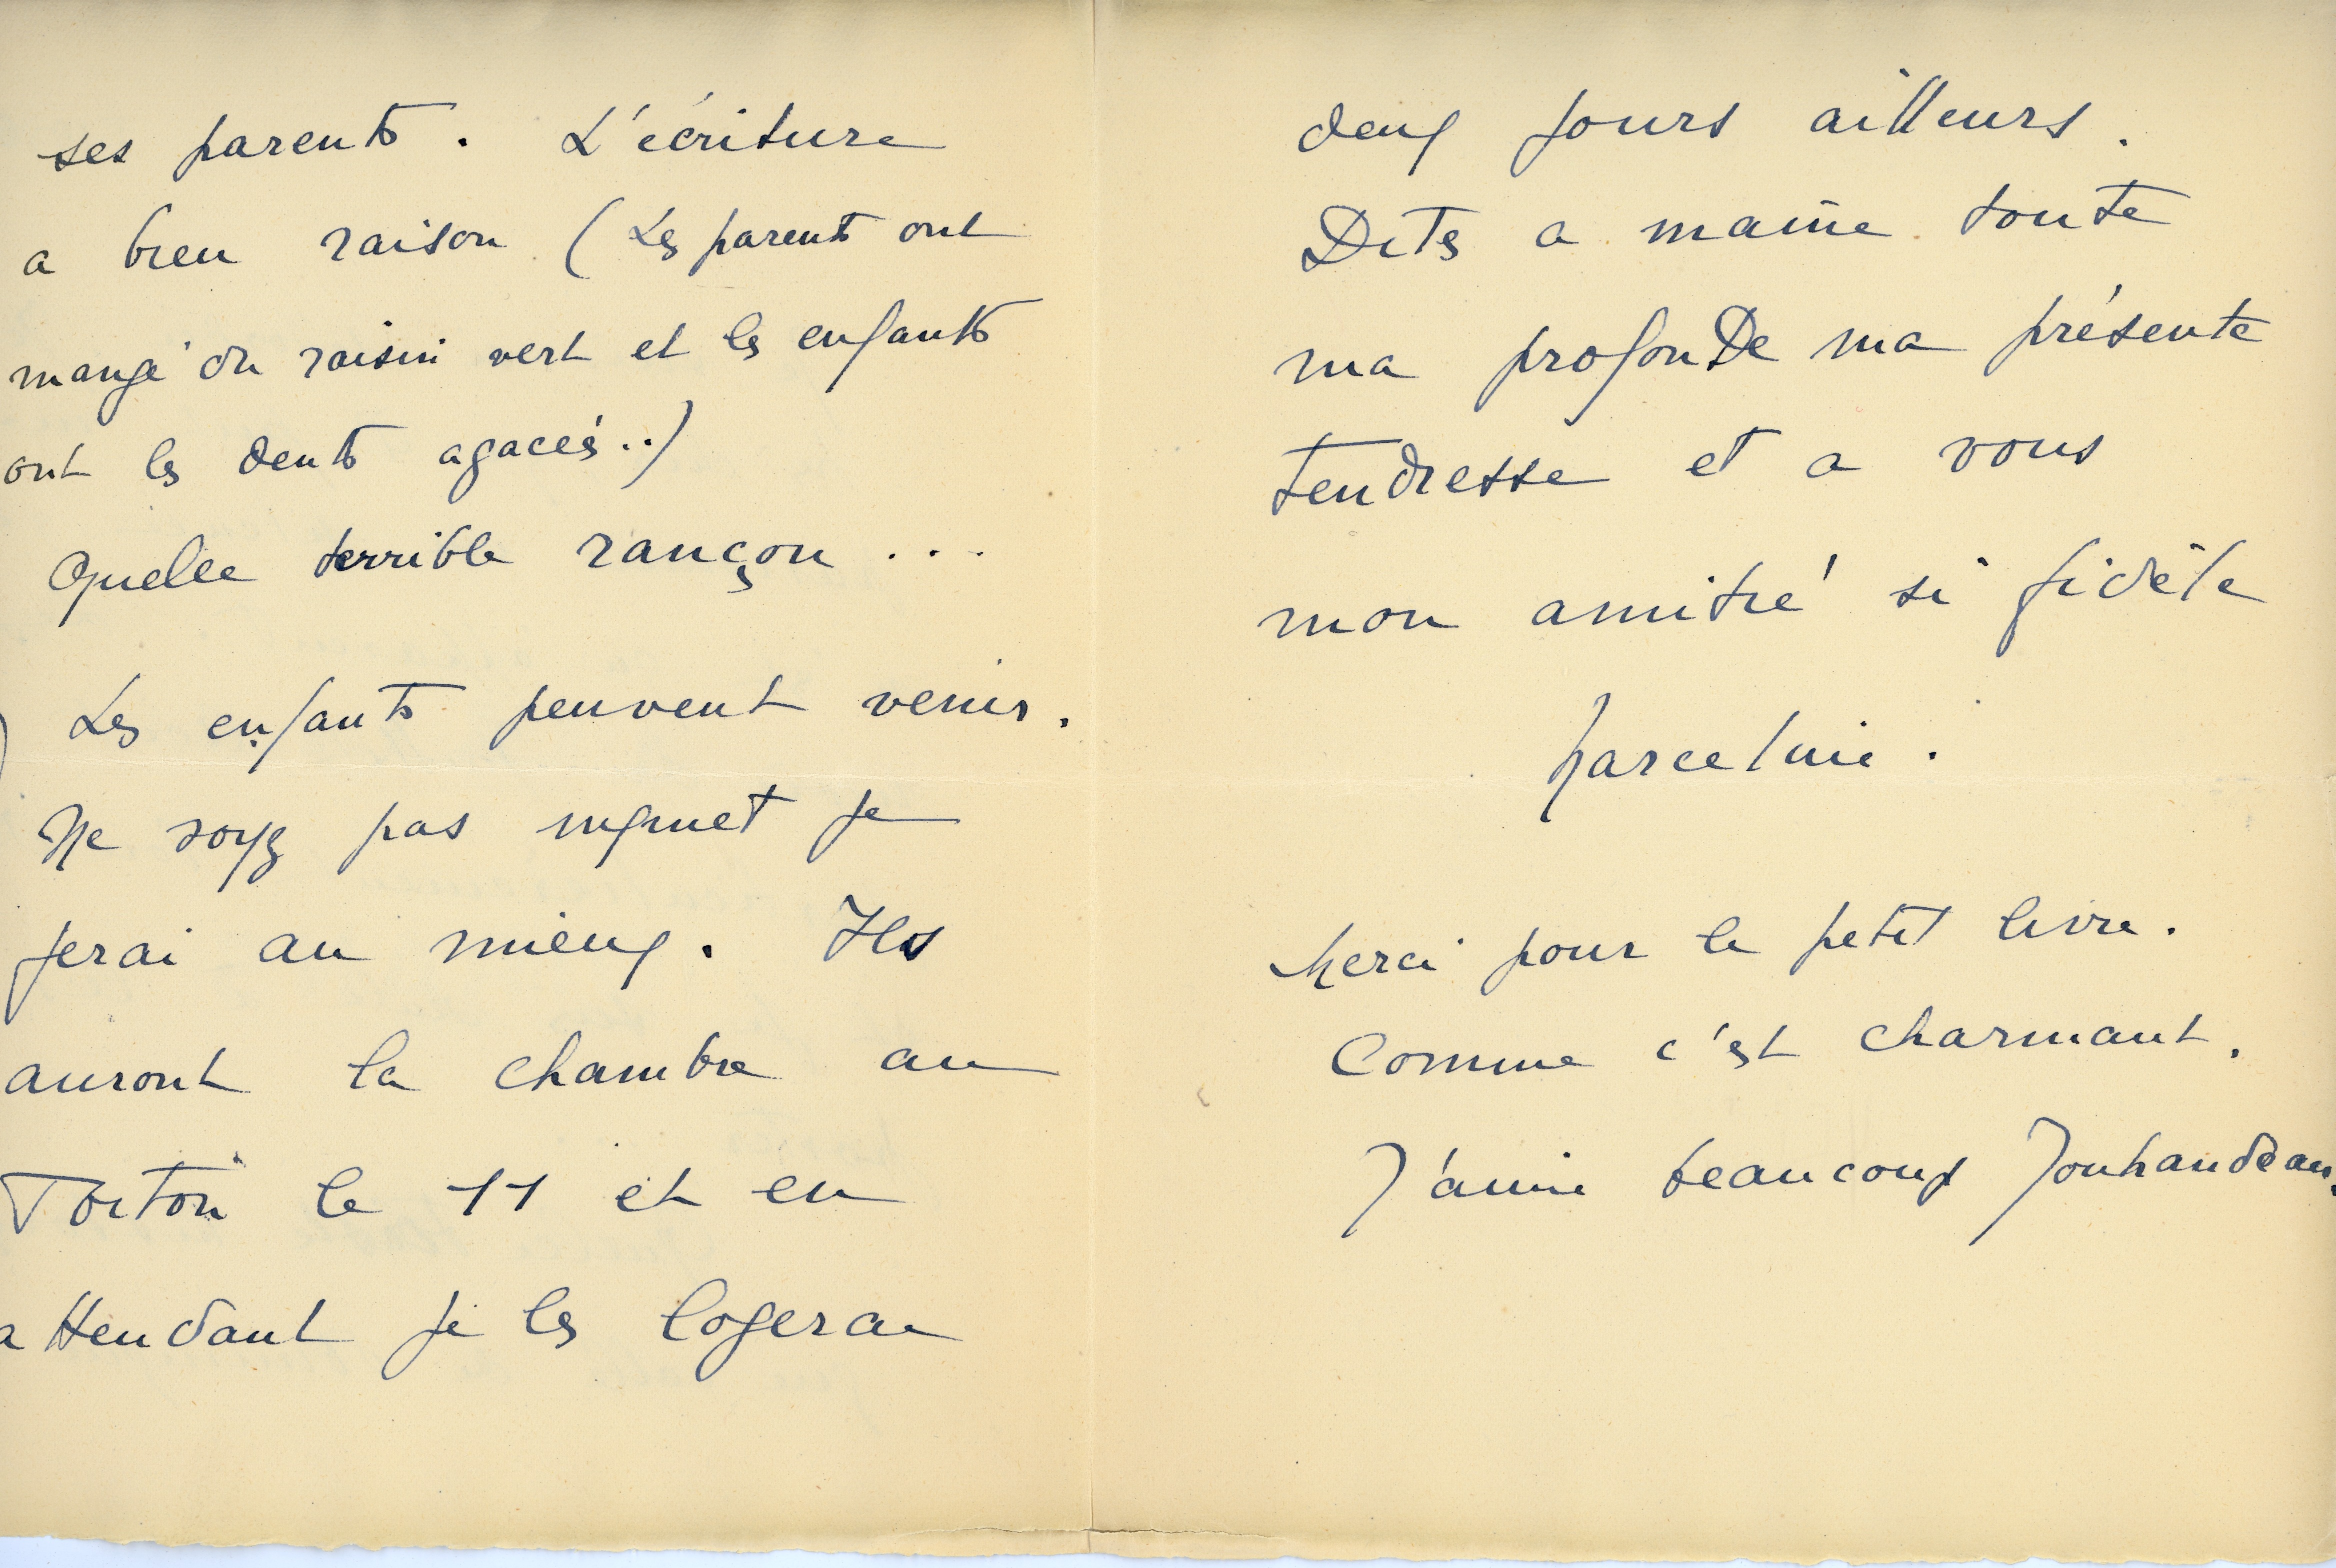 ses parents. L'écriture
a bien raison (Les parents ont
mangé du raisin vert et les enfants
ont les dents agacés..)
Quelle terrible rançon ...
Les enfants peuvent venir.
Ne soyez pas inquiet je
ferai au mieux. Ils
auront la chambre au
Tortoni le 11 et en
attendant je les logerai
deux jours ailleurs.
Dites a toute
ma profonde ma présente
tendresse et a vous
mon amitié si fidèle
Marceline.
Merci pour le petit livre.
Comme c'est charmant.
J'aime beaucoup Jouhandeau.